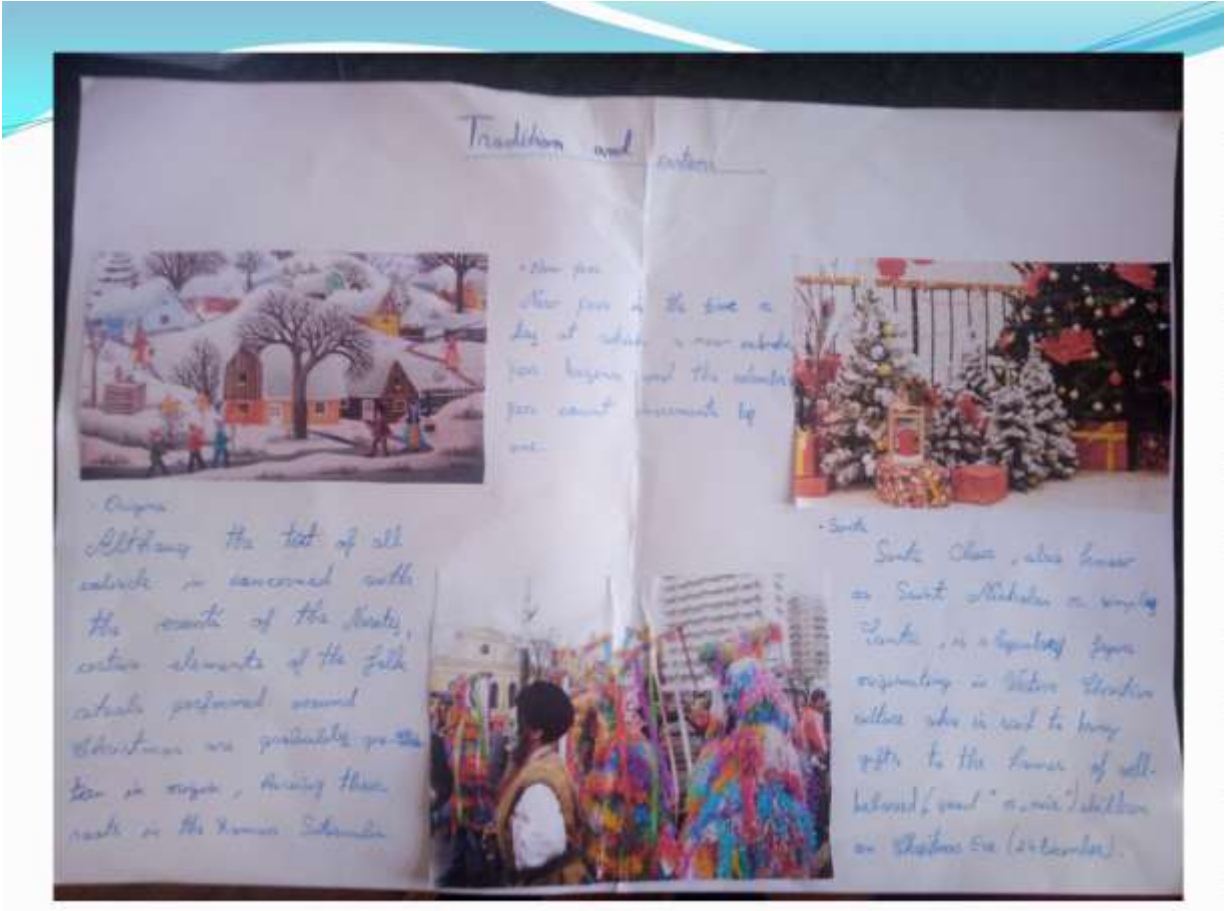 Tradition and
• New year
New year is the time or
day at which a new calendar
year begins and the calendar
year count increments by
one.
• Origins
Although the text of all
is concerned with
the events of the
certain elements of the folk
rituals performed around
Christmas are probably
in origin, having their
roots in the Roman
• Santa
Santa Claus, also known
as Saint Nicholas or simply
Santa, is a legendary figure
originating in Western Christian
culture who is said to bring
gifts to the homes of well-
behaved ("good" or "nice") children
on Christmas Eve (24 December).